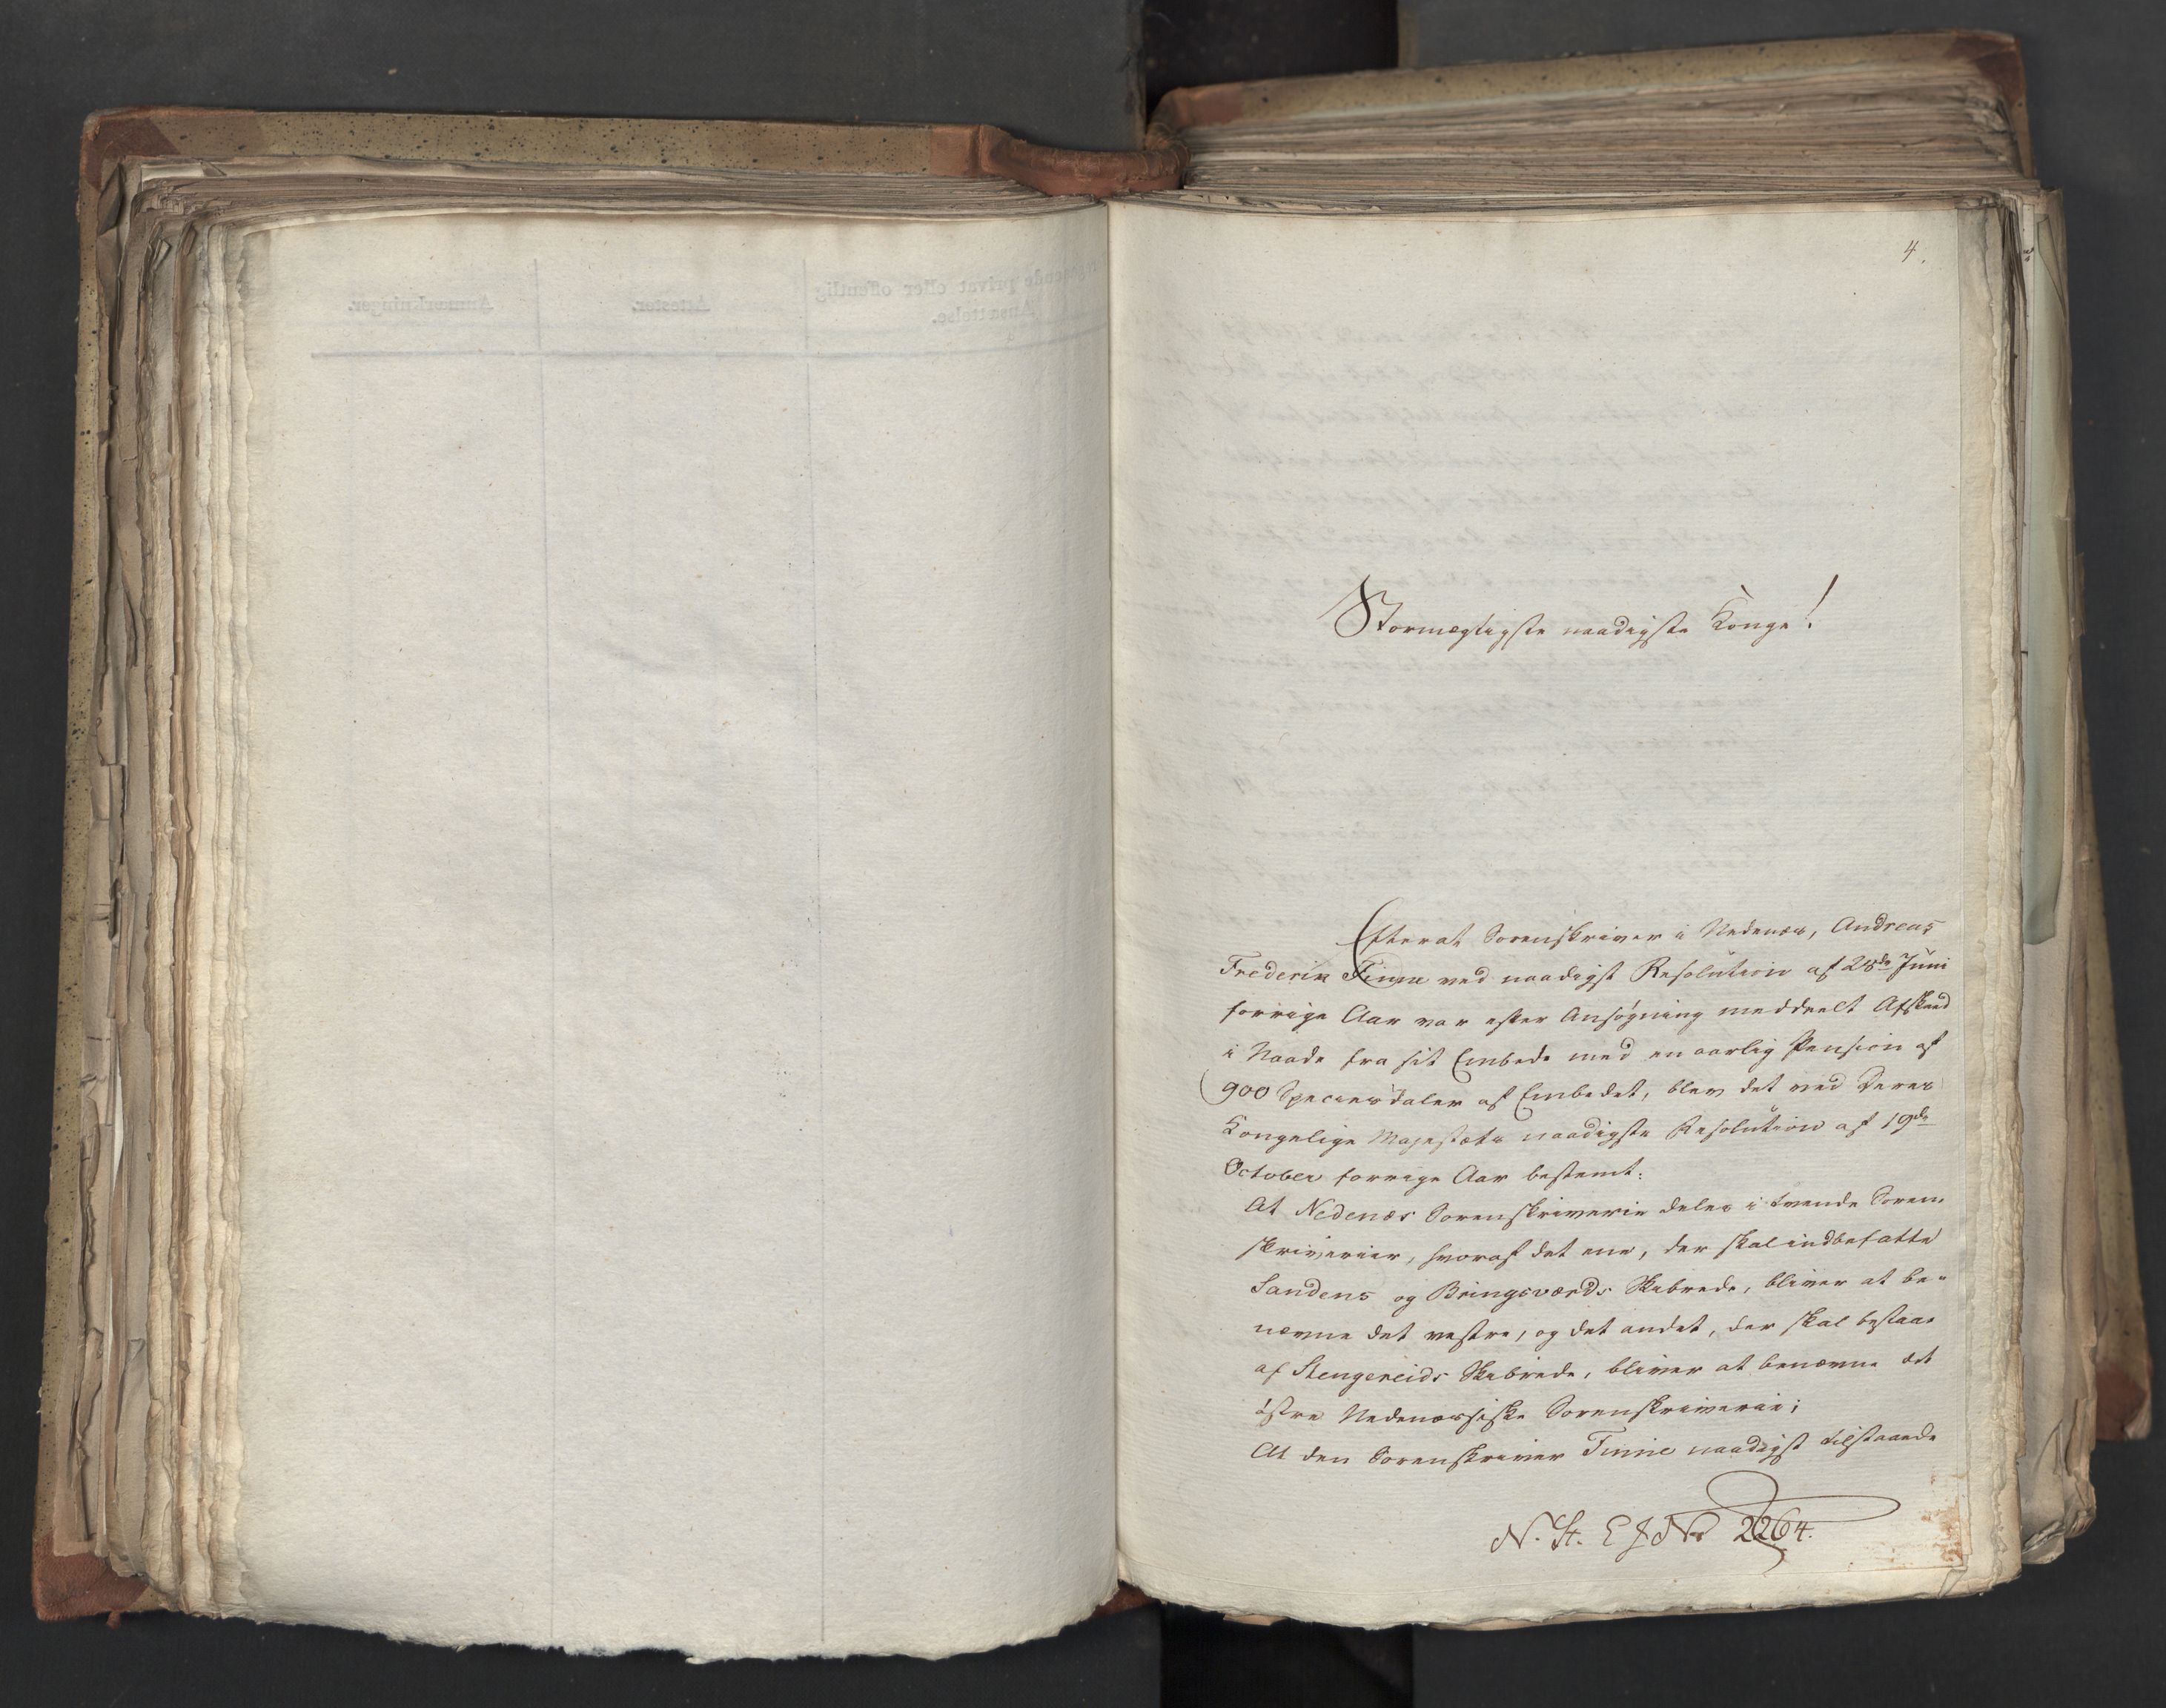 4.
Stormægtigste naadigste Konge!
Efterat Sorenskriver i Nedenæs, Andreas
Frederik Finne ved naadigst Resolution af 25de Juni
forrige Aar var efter Ansøgning meddeelt Afskeed
i Naade fra sit Embede med en aarlig Pension af
900 Speciesdaler af Embedet, blev det ved Deres
Kongelige Majestæts naadigste Resolution af 19de
October forrige Aar bestemt:
At Nedenæs Sorenskriverie deles i tvende Soren-
skriverier, hvoraf det ene, der skal indbefatte
Sandens og Bringsværds Skibrede, bliver at be-
nævne det vestre, og det andet, der skal bestaae
af Stengereids Skibrede, bliver at benævne det
østre Nedenæssiske Sorenskriverie;
At den Sorenskriver Finne naadigst tilstaaede
N. St. E J No 2264.